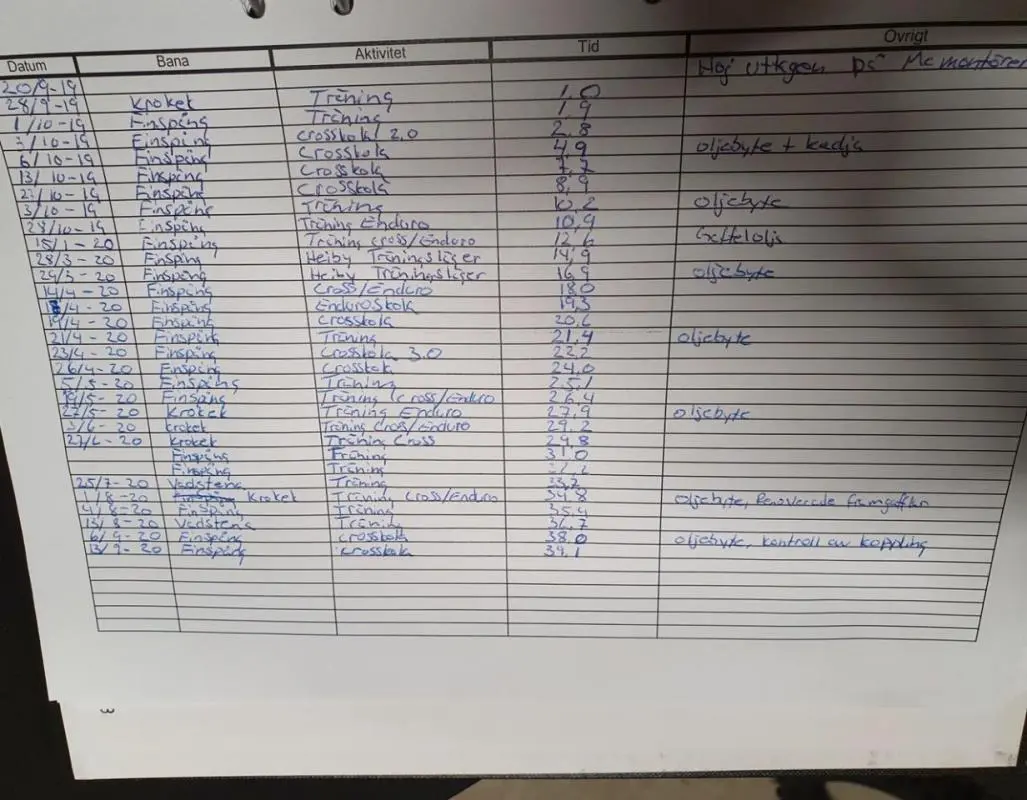 Datum Bana Aktivitet Tid Övrigt
20/9-19 Höj utkgen DS Mc montören
28/9-19 Kroket Träning 1,0
1/10-19 Finspång Träning 1,9
3/10-19 Finspång Crosskola 2.0 2,8
6/10-19 Finspång Crosskola 4,9 oljebyte + kedja
13/10-19 Finspång Crosskola 7,7
27/10-19 Finspång Crosskola 8,9
3/10-19 Finspång Träning 10,2 oljebyte
28/10-19 Finspång Träning Enduro 10,9
15/1-20 Finspång Träning cross/Enduro 12,6 Gaffelolja
28/3-20 Finspång Heiby Träningsläger 14,9
29/3-20 Finspång Heiby Träningsläger 16,9 oljebyte
14/4-20 Finspång Cross/Enduro 18,0
/4-20 Finspång Enduroskola 19,3
19/4-20 Finspång Crosskola 20,6
21/4-20 Finspång Träning 21,4 oljebyte
23/4-20 Finspång Crosskola 3.0 22,2
26/4-20 Finspång Crosskola 24,0
5/5-20 Finspång Träning 25,1
19/5-20 Finspång Träning Cross/Enduro 26,4
27/5-20 Kroket Träning Enduro 27,9 oljebyte
3/6-20 Kroket Träning Cross/Enduro 29,2
27/6-20 Kroket Träning Cross 29,8
Finspång Träning 31,0
Finspång Träning
25/7-20 Vadstena Träning 33,2
1/8-20 Finspång Kroket Träning Cross/Enduro 34,8 oljebyte, Renoverade framgaffeln
4/8-20 Finspång Träning 35,4
13/8-20 Vadstena Träning 36,7
6/9-20 Finspång Crosskola 38,0 oljebyte, kontroll av koppling
13/9-20 Finspång Crosskola 39,1
3